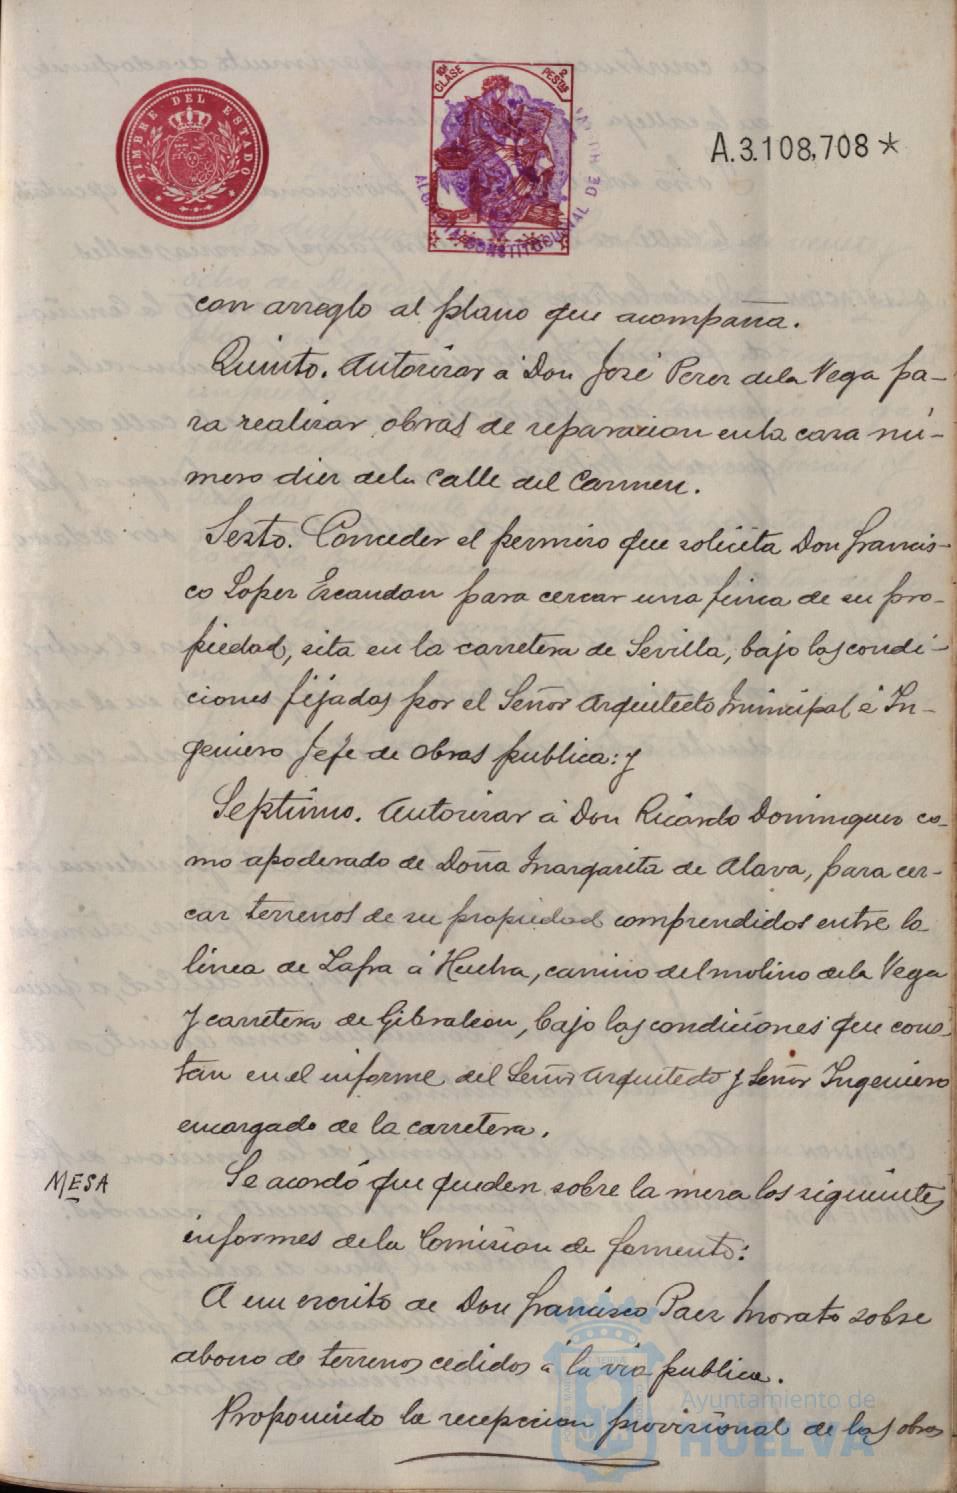 TIMBRE DEL ESTADO
10ª CLASE 2 PESTAS
ALCALDIA CONSTITUCIONAL DE
A.3.108,708 *
con arreglo al plano que acompaña.
Quinto. Autorizar á Don José Perez dela Vega pa-
ra realizar obras de reparacion en la casa nú-
mero diez dela Calle del Carmen.
Sexto. Conceder el permiso que solicita Don Francis-
co Lopez Escandon para cercar una finca de su pro-
piedad, sita en la carretera de Sevilla, bajo las condi-
ciones fijadas por el Señor Arquitecto Municipal é In-
geniero Jefe de Obras publica: y
Septimo. Autorizar á Don Ricardo Dominguez co-
mo apoderado de Doña Margarita de Alava, para cer-
car terrenos de su propiedad comprendidos entre la
linea de Zafra á Huelva, camino del molino dela Vega
y carretera de Gibraleon, bajo las condiciones que cons-
tan en el informe del Señor Arquitecto y Señor Ingeniero
encargado de la carretera.
MESA
Se acordó que queden sobre la mesa los siguientes
informes dela Comision de fomento:
A un escrito de Don Francisco Paez Morato sobre
abono de terrenos cedidos á la via publica.
Proponiendo la recepcion provisional de las obras
Ayuntamiento de
HUELVA